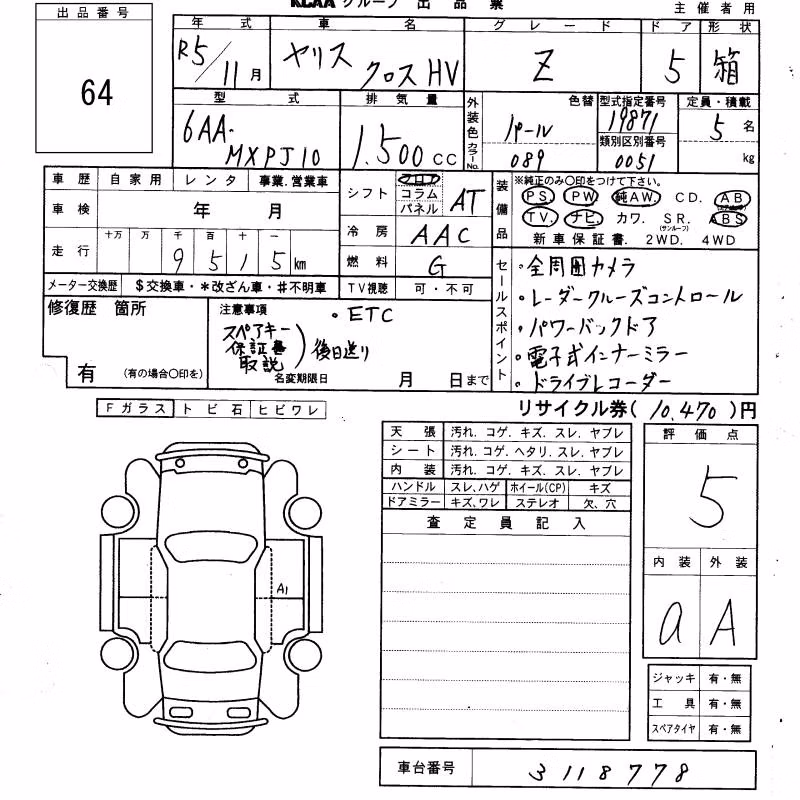 KCAA グループ 出品票
主催者用
出品番号
64
年式 車名 グレード ドア 形状
R5/11月 ヤリスクロスHV Z 5 箱
型式 排気量 外装色 カラーNo. 色替 型式指定番号 定員・積載
6AA-MXPJ10 1,500cc パール 089 19871 5名
類別区別番号 0051 kg
車歴 自家用 レンタ 事業.営業車
車検 年 月
走行 十万 万 千 百 十 一
9 5 1 5 km
メーター交換歴 $交換車・*改ざん車・#不明車
シフト フロア コラム パネル AT
冷房 AAC
燃料 G
TV視聴 可・不可
装備品
※純正のみ〇印をつけて下さい。
PS. PW. 純AW. CD. AB
TV. ナビ. カワ. SR.(サンルーフ) ABS
新車保証書. 2WD. 4WD
セールスポイント
・全周囲カメラ
・レーダークルーズコントロール
・パワーバックドア
・電子式インナーミラー
・ドライブレコーダー
修復歴 箇所
有 (有の場合〇印を)
注意事項
・ETC
スペアキー
保証書
取説
後日送り
名変期限日 月 日まで
リサイクル券(10,470)円
Fガラス トビ石 ヒビワレ
A1
天張 汚れ. コゲ. キズ. スレ. ヤブレ
シート 汚れ. コゲ. ヘタリ. スレ. ヤブレ
内装 汚れ. コゲ. キズ. スレ. ヤブレ
ハンドル スレ,ハゲ ホイール(CP) キズ
ドアミラー キズ,ワレ ステレオ 欠、穴
査定員記入
評価点
5
内装 外装
a A
ジャッキ 有・無
工具 有・無
スペアタイヤ 有・無
車台番号 3118778